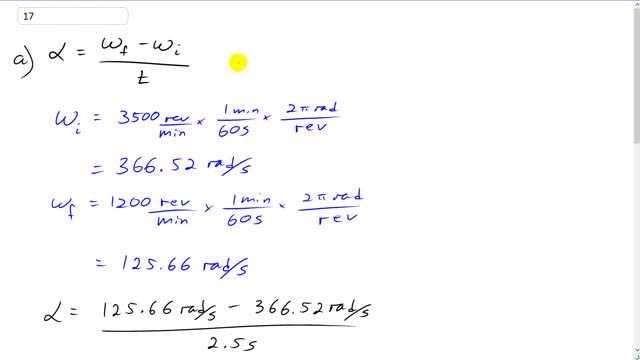 17
a) α = ω_f - ω_i / t
ω_i = 3500 rev/min × 1 min/60s × 2π rad/rev
= 366.52 rad/s
ω_f = 1200 rev/min × 1 min/60s × 2π rad/rev
= 125.66 rad/s
α = 125.66 rad/s - 366.52 rad/s / 2.5s